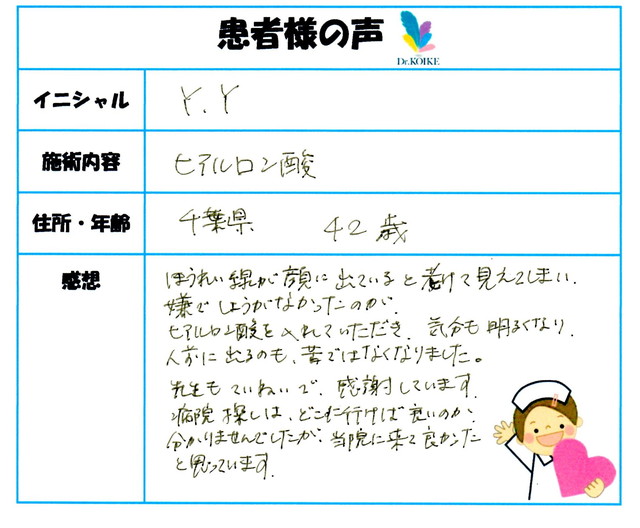 患者様の声
Dr.KOIKE
イニシャル
Y.Y
施術内容
ヒアルロン酸
住所・年齢
千葉県 42歳
感想
ほうれい線が顔に出ていると老けて見えてしまい、
嫌でしょうがなかったのが、
ヒアルロン酸を入れていただき、気分も明るくなり、
人前に出るのも、苦ではなくなりました。
先生もていねいで、感謝しています。
病院探しは、どこに行けば良いのか
分かりませんでしたが、当院に来て良かった
と思っています。